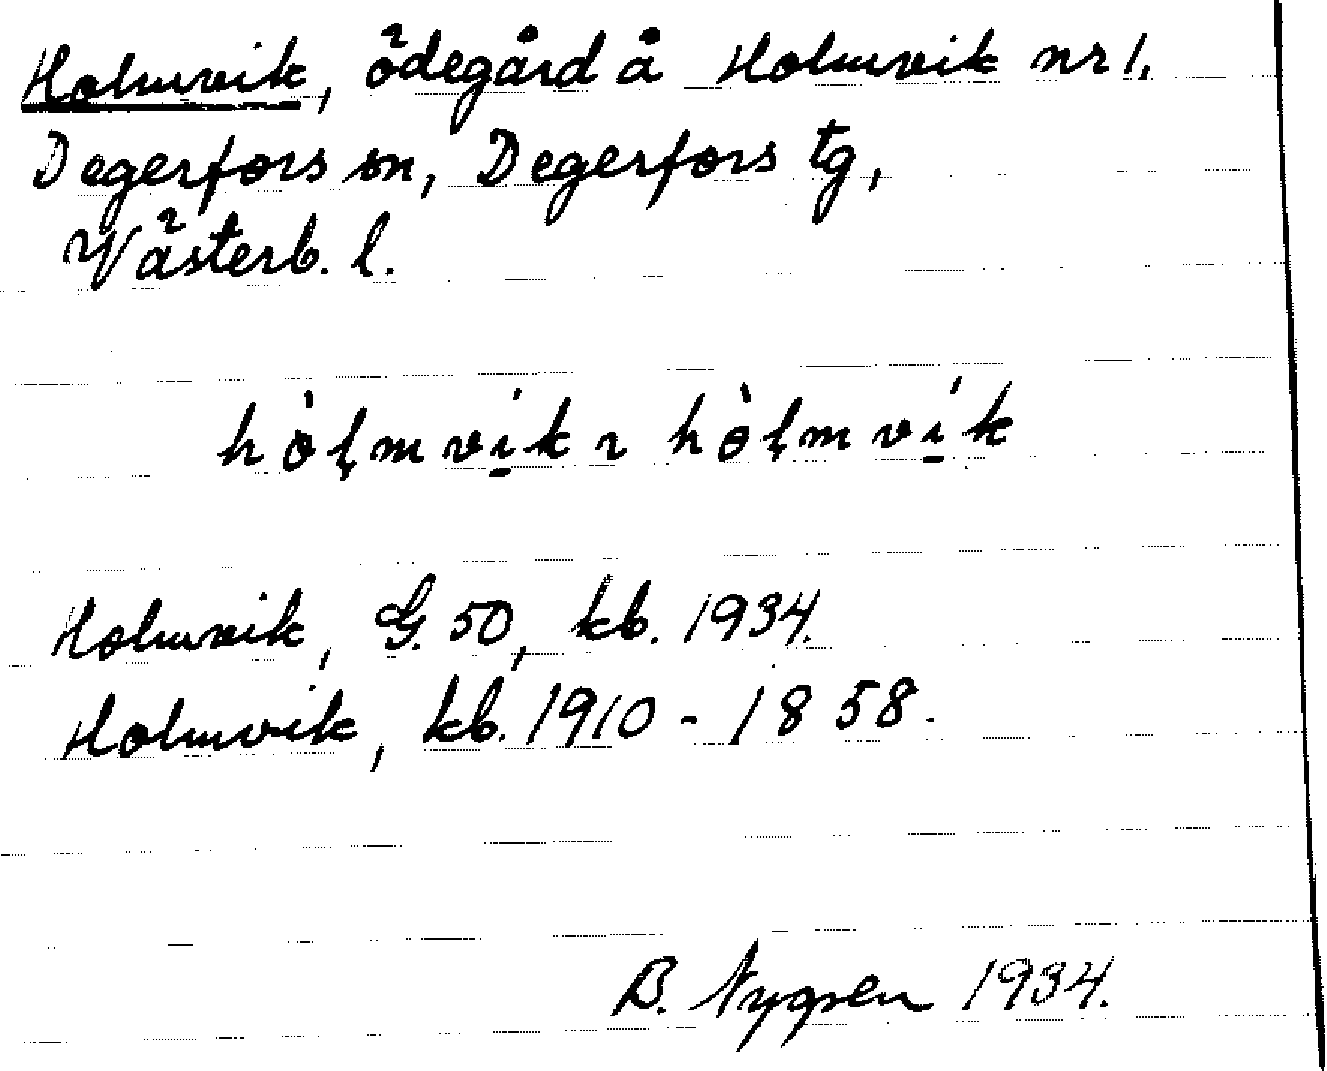 Holmvik, ödegård å Holmvik nr 1,
Degerfors sn, Degerfors tg,
Västerb. l.
hòlmvik ~ hòlmvík
Holmvik, G. 50, kb. 1934.
Holmvik, kb. 1910 - 1858.
B. Nygren 1934.